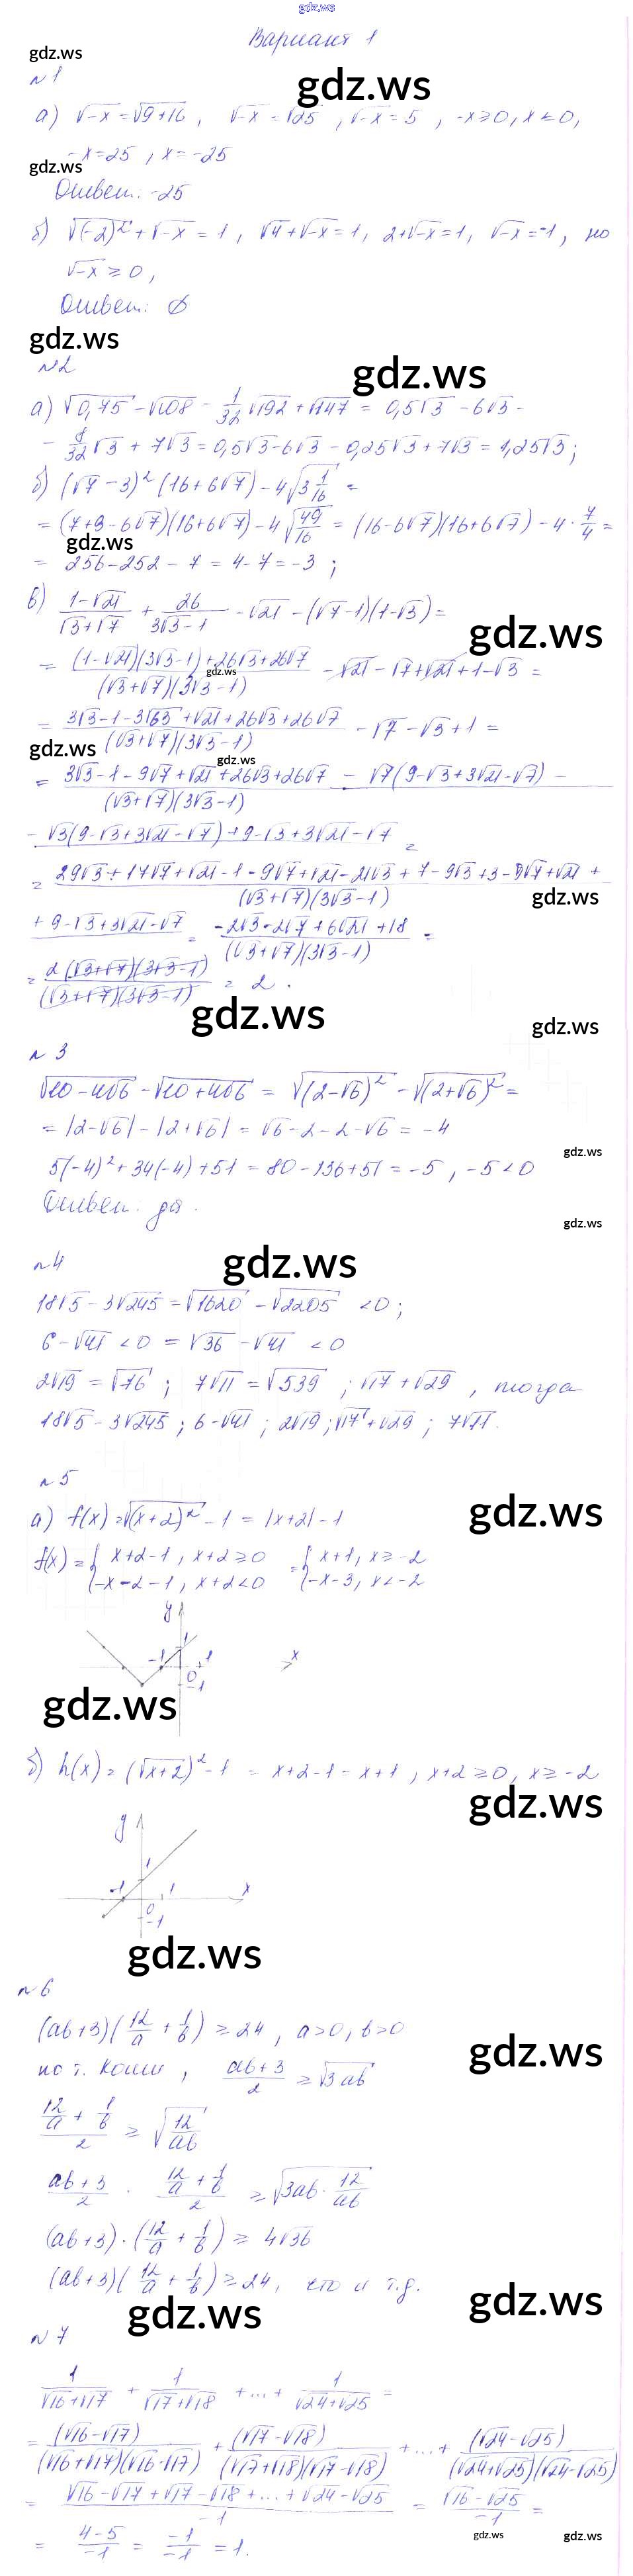 gdz.ws
Вариант 1
gdz.ws
№1
gdz.ws
а) √-x = √9+16, √-x = √25, √-x = 5, -x≥0, x≤0,
-x=25, x=-25
gdz.ws
Ответ: -25
б) √(-2)² + √-x = 1, √4 + √-x = 1, 2+√-x = 1, √-x = -1, но
√-x ≥ 0,
Ответ: ∅
gdz.ws
№2
gdz.ws
а) √0,75 - √108 - 1/32 √192 + √147 = 0,5√3 - 6√3 -
- 8/32 √3 + 7√3 = 0,5√3 - 6√3 - 0,25√3 + 7√3 = 1,25√3;
б) (√7 - 3)² (16+6√7) - 4√3 1/16 =
= (7+9-6√7)(16+6√7) - 4√49/16 = (16-6√7)(16+6√7) - 4·7/4 =
gdz.ws
= 256-252-7 = 4-7 = -3;
в) (1-√21)/(√3+√7) + 26/(3√3-1) - √21 - (√7-1)(1-√3) =
gdz.ws
= ((1-√21)(3√3-1)+26√3+26√7)/((√3+√7)(3√3-1)) - √21 - √7+√21+1-√3 =
gdz.ws
= (3√3-1-3√63+√21+26√3+26√7)/((√3+√7)(3√3-1)) - √7 - √3+1 =
gdz.ws
gdz.ws
= (3√3-1-9√7+√21+26√3+26√7 - √7(9-√3+3√21-√7) -)/((√3+√7)(3√3-1))
- √3(9-√3+3√21-√7)+9-√3+3√21-√7 =
= (29√3+17√7+√21-1-9√7+√21-21√3+7-9√3+3-9√7+√21 +)/((√3+√7)(3√3-1))
gdz.ws
+ 9-√3+3√21-√7 = (-2√3-2√7+6√21+18)/((√3+√7)(3√3-1)) =
= 2(√3+√7)(3√3-1)/((√3+√7)(3√3-1)) = 2.
gdz.ws
gdz.ws
№3
√10-4√6 - √10+4√6 = √(2-√6)² - √(2+√6)² =
= |2-√6| - |2+√6| = √6-2-2-√6 = -4
gdz.ws
5(-4)²+34(-4)+51 = 80-136+51 = -5, -5<0
Ответ: да.
gdz.ws
gdz.ws
№4
18√5 - 3√245 = √1620 - √2205 <0;
6-√41 <0 = √36 - √41 <0
2√19 = √76; 7√11 = √539; √17+√29, тогда
18√5-3√245; 6-√41; 2√19; √17+√29; 7√11.
№5
gdz.ws
а) f(x)=√(x+2)² - 1 = |x+2| - 1
f(x) = { x+2-1, x+2≥0 = { x+1, x≥-2
-x-2-1, x+2<0 -x-3, x<-2
y
1
-1 1 x
0
-1
gdz.ws
б) h(x) = (√x+2)² - 1 = x+2-1 = x+1, x+2≥0, x≥-2
gdz.ws
y
1
-1 1 x
0
-1
gdz.ws
№6
(ab+3)(12/a + 1/b) ≥ 24, a>0, b>0
gdz.ws
по т. Коши, (ab+3)/2 ≥ √3ab
(12/a + 1/b)/2 ≥ √12/ab
(ab+3)/2 · (12/a + 1/b)/2 ≥ √3ab·12/ab
(ab+3)·(12/a + 1/b) ≥ 4√36
(ab+3)(12/a + 1/b) ≥ 24, что и т.д.
gdz.ws
gdz.ws
№7
1/(√16+√17) + 1/(√17+√18) + ... + 1/(√24+√25) =
= (√16-√17)/((√16+√17)(√16-√17)) + (√17-√18)/((√17+√18)(√17-√18)) + ... + (√24-√25)/((√24+√25)(√24-√25))
= (√16-√17+√17-√18+...+√24-√25)/-1 = (√16-√25)/-1 =
= (4-5)/-1 = -1/-1 = 1.
gdz.ws
gdz.ws